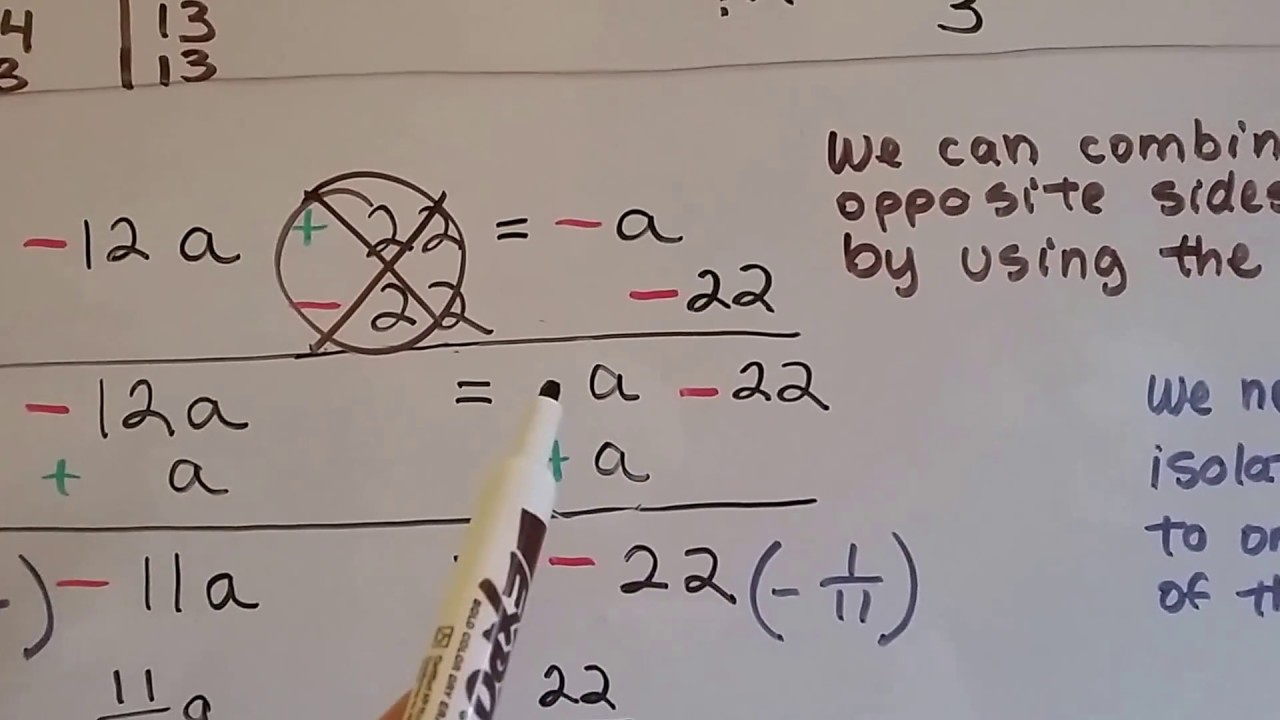 4 | 13
3 | 13
3
We can combin
opposite sides
by using the
-12a + 22 = -a
- 22 -22
-12a = a -22
+ a + a
We ne
isola
to or
of th
) -11a -22(-1/11)
11a 22
EXPO
BOLD COLOR DRY ERA